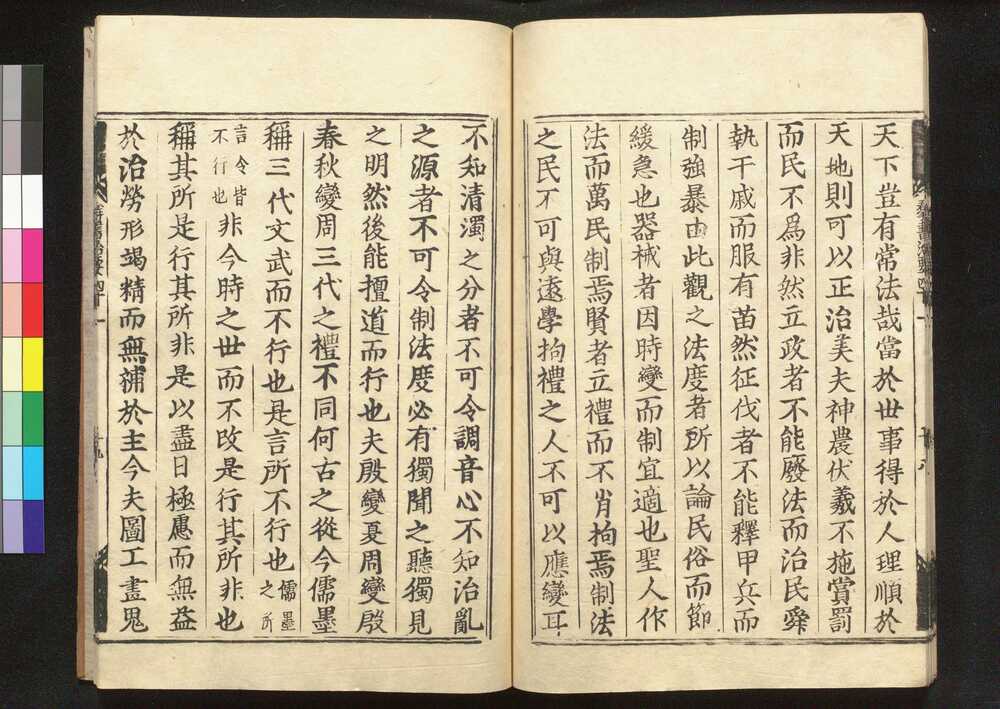 天下豈有常法哉當於世事得於人理順於
天地則可以正治美夫神農伏羲不施賞罰
而民不爲非然立政者不能廢法而治民舜
執干戚而服有苗然征伐者不能釋甲兵而
制強暴由此觀之法度者所以論民俗而節
緩急也器械者因時變而制宜適也聖人作
法而萬民制焉賢者立禮而不肖拘焉制法
之民不可與遠學拘禮之人不可以應變耳
不知清濁之分者不可令調音心不知治亂
之源者不可令制法度必有獨聞之聽獨見
之明然後能擅道而行也夫殷變夏周變殷
春秋變周三代之禮不同何古之從今儒墨
稱三代文武而不行也是言所不行也儒墨之所
言今皆不行也非今時之世而不改是行其所非也
稱其所是行其所非是以盡日極慮而無益
於治勞形竭精而無補於主今夫圖工畫鬼
群書治要四十一
十八